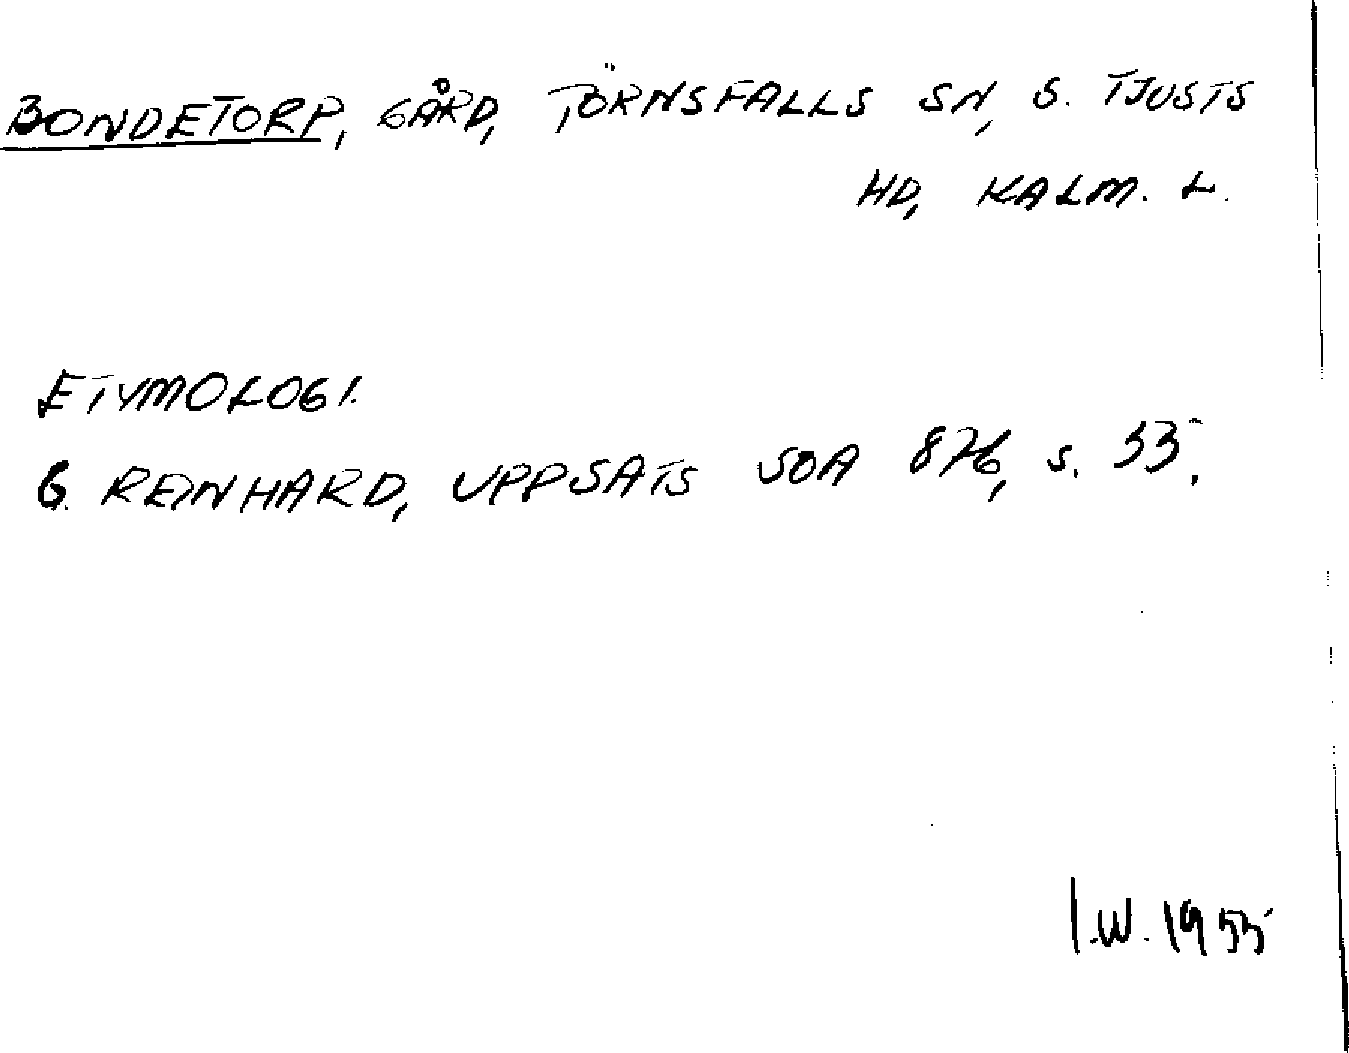 BONDETORP, GÅRD, TÖRNSFALLS SN, S. TJUSTS
HD, KALM. L.
ETYMOLOGI.
G. REINHARD, UPPSATS SOA 876, s. 35.
I.W. 1955